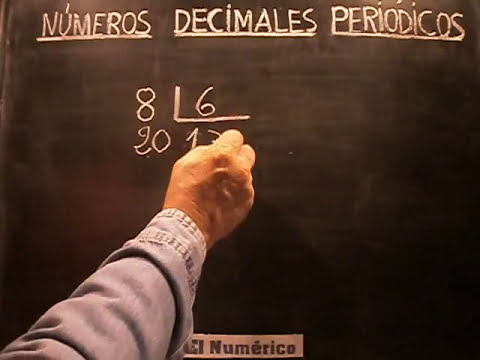 NÚMEROS DECIMALES PERIÓDICOS
8 6
20 1
El Numérico